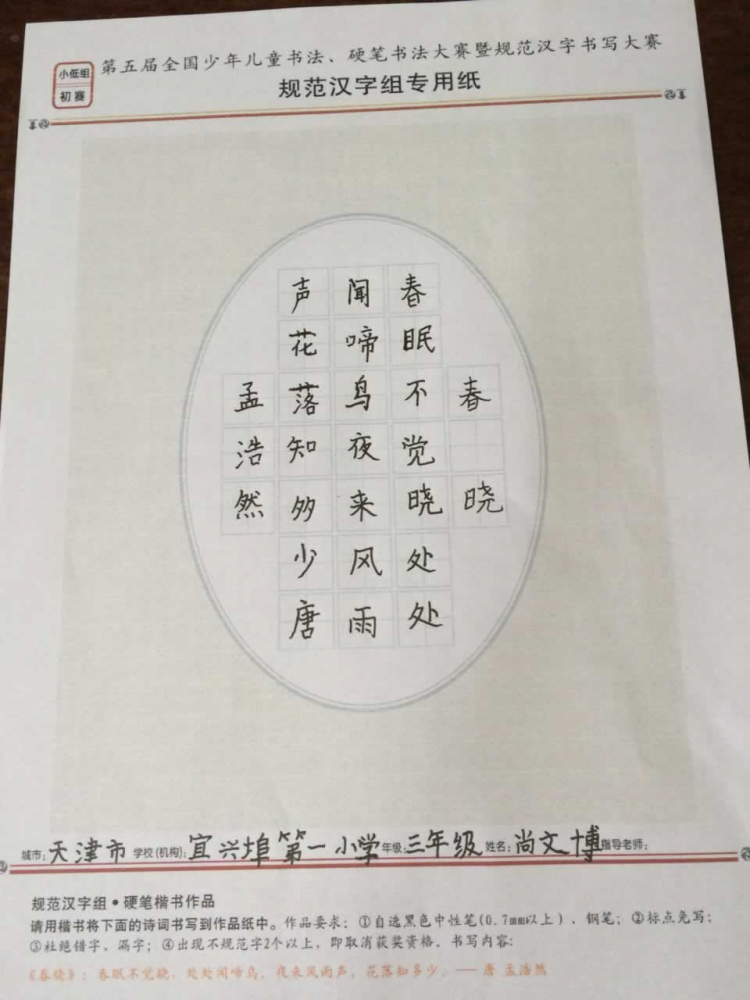 小低组
初赛
第五届全国少年儿童书法、硬笔书法大赛暨规范汉字书写大赛
规范汉字组专用纸
春晓
春眠不觉晓处处
闻啼鸟夜来风雨
声花落知多少唐
孟浩然
城市:天津市 学校(机构):宜兴埠第一小学 年级:三年级 姓名:尚文博 指导老师:
规范汉字组•硬笔楷书作品
请用楷书将下面的诗词书写到作品纸中。作品要求:①自选黑色中性笔(0.7mm以上)、钢笔;②标点免写;
③杜绝错字、漏字;④出现不规范字2个以上,即取消获奖资格。书写内容:
《春晓》:春眠不觉晓,处处闻啼鸟,夜来风雨声,花落知多少。——唐 孟浩然